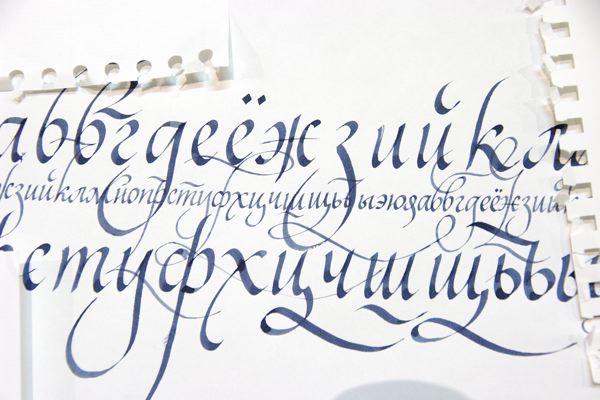 абвгдеёжзийкл
жзийклмнопрстуфхцчшщъыэюяабвгдеёжзийк
стуфхцчшщъы